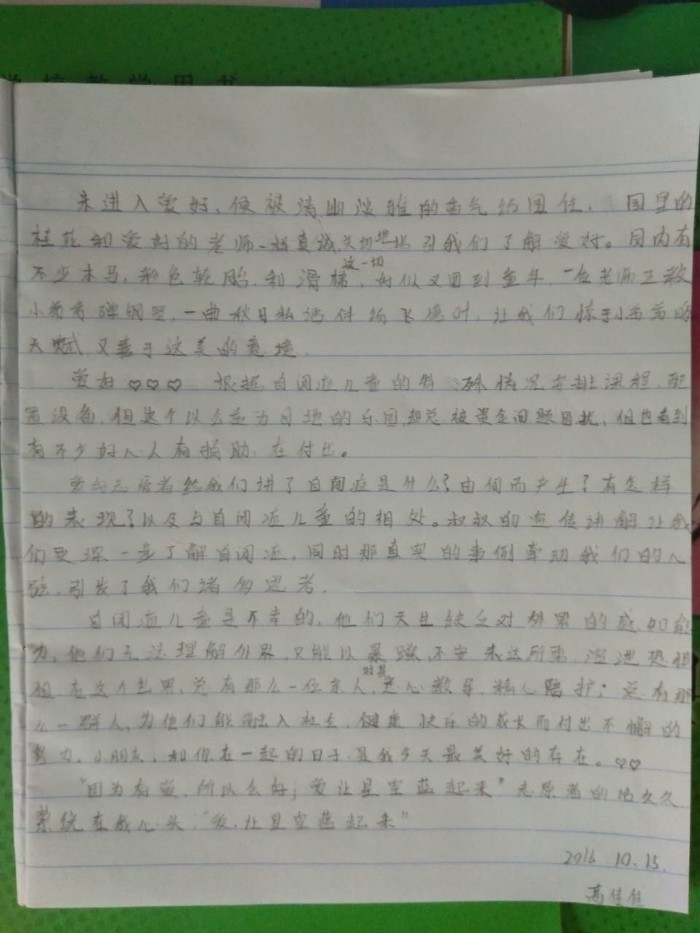 学校教学用书
未进入爱好,便被清幽淡雅的香气给围住,园里的
桂花和爱好的老师一样真诚关切地引我们了解爱好。园内有
不少木马,彩色轮胎,和滑梯,这一切好似又回到童年,一位老师正教
小弟弟弹钢琴,一曲秋日私语伴场飞落叶,让我们惊于弟弟的
天赋又羡于这美的意境.
爱好♡♡♡ 根据自闭症儿童的特殊情况安排课程,配
置设备,但这个以公益为目地的乐园却总被资金问题困扰,但也看到
有不少好心人有捐助,在付出。
志愿者给我们讲了自闭症是什么?由何而产生?有怎样
的表现?以及与自闭症儿童的相处。叔叔的宣传讲解让我
们更深一步了解自闭症,同时那真实的事例牵动我们的心
弦,引发了我们诸多思考.
自闭症儿童是不幸的,他们天生缺乏对外界的感知能
力,他们无法理解外界,只能以暴躁,不安表达所需,
在这个世界,总有那么一位亲人,对其悉心教导,精心陪护;总有那
么一群人,为他们能融入社会,健康快乐的成长而付出不懈的
努力,小朋友,和你在一起的日子是我今天最美好的存在。♡♡
"因为有爱,所以么好;爱让星空蓝起来"志愿者的话久久
萦绕在我心头,"爱,让星空蓝起来"
2016 10.15.
高